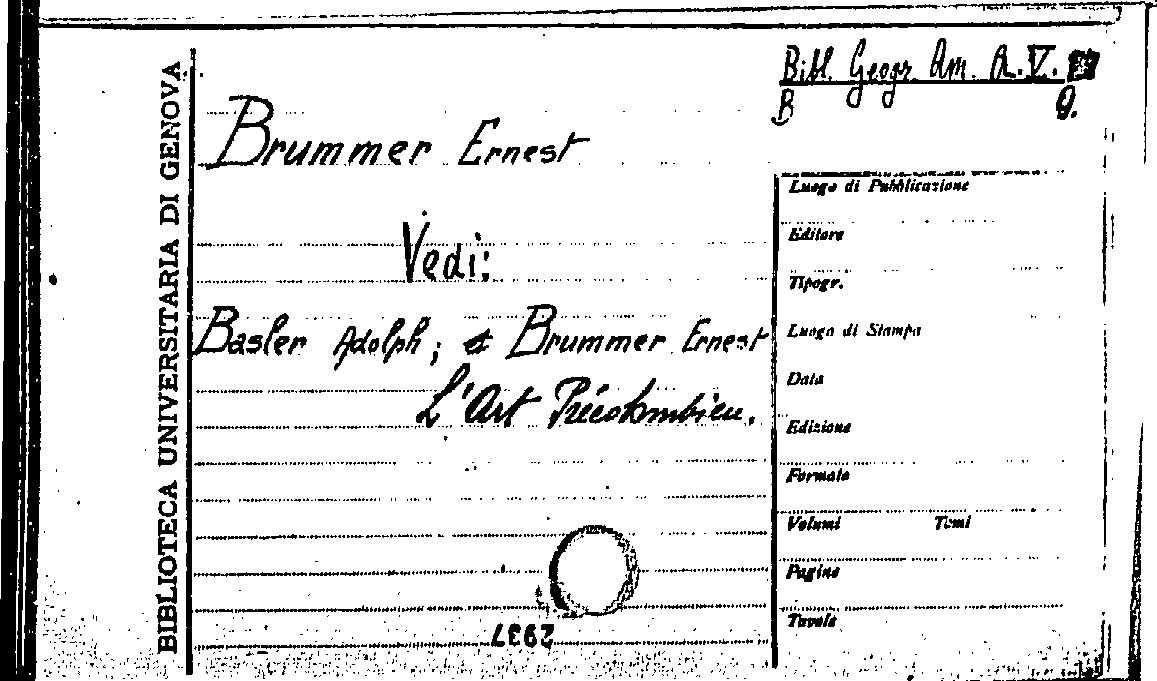 Bibl. Geogr. Am. A. V.
B 9.
BIBLIOTECA UNIVERSITARIA DI GENOVA
Brummer Ernest
Vedi:
Basler Adolph; & Brummer Ernest
L'Art Précolombien.
Luogo di Pubblicazione
Editore
Tipogr.
Luogo di Stampa
Data
Edizione
Formato
Volumi Tomi
Pagine
Tavole
2937